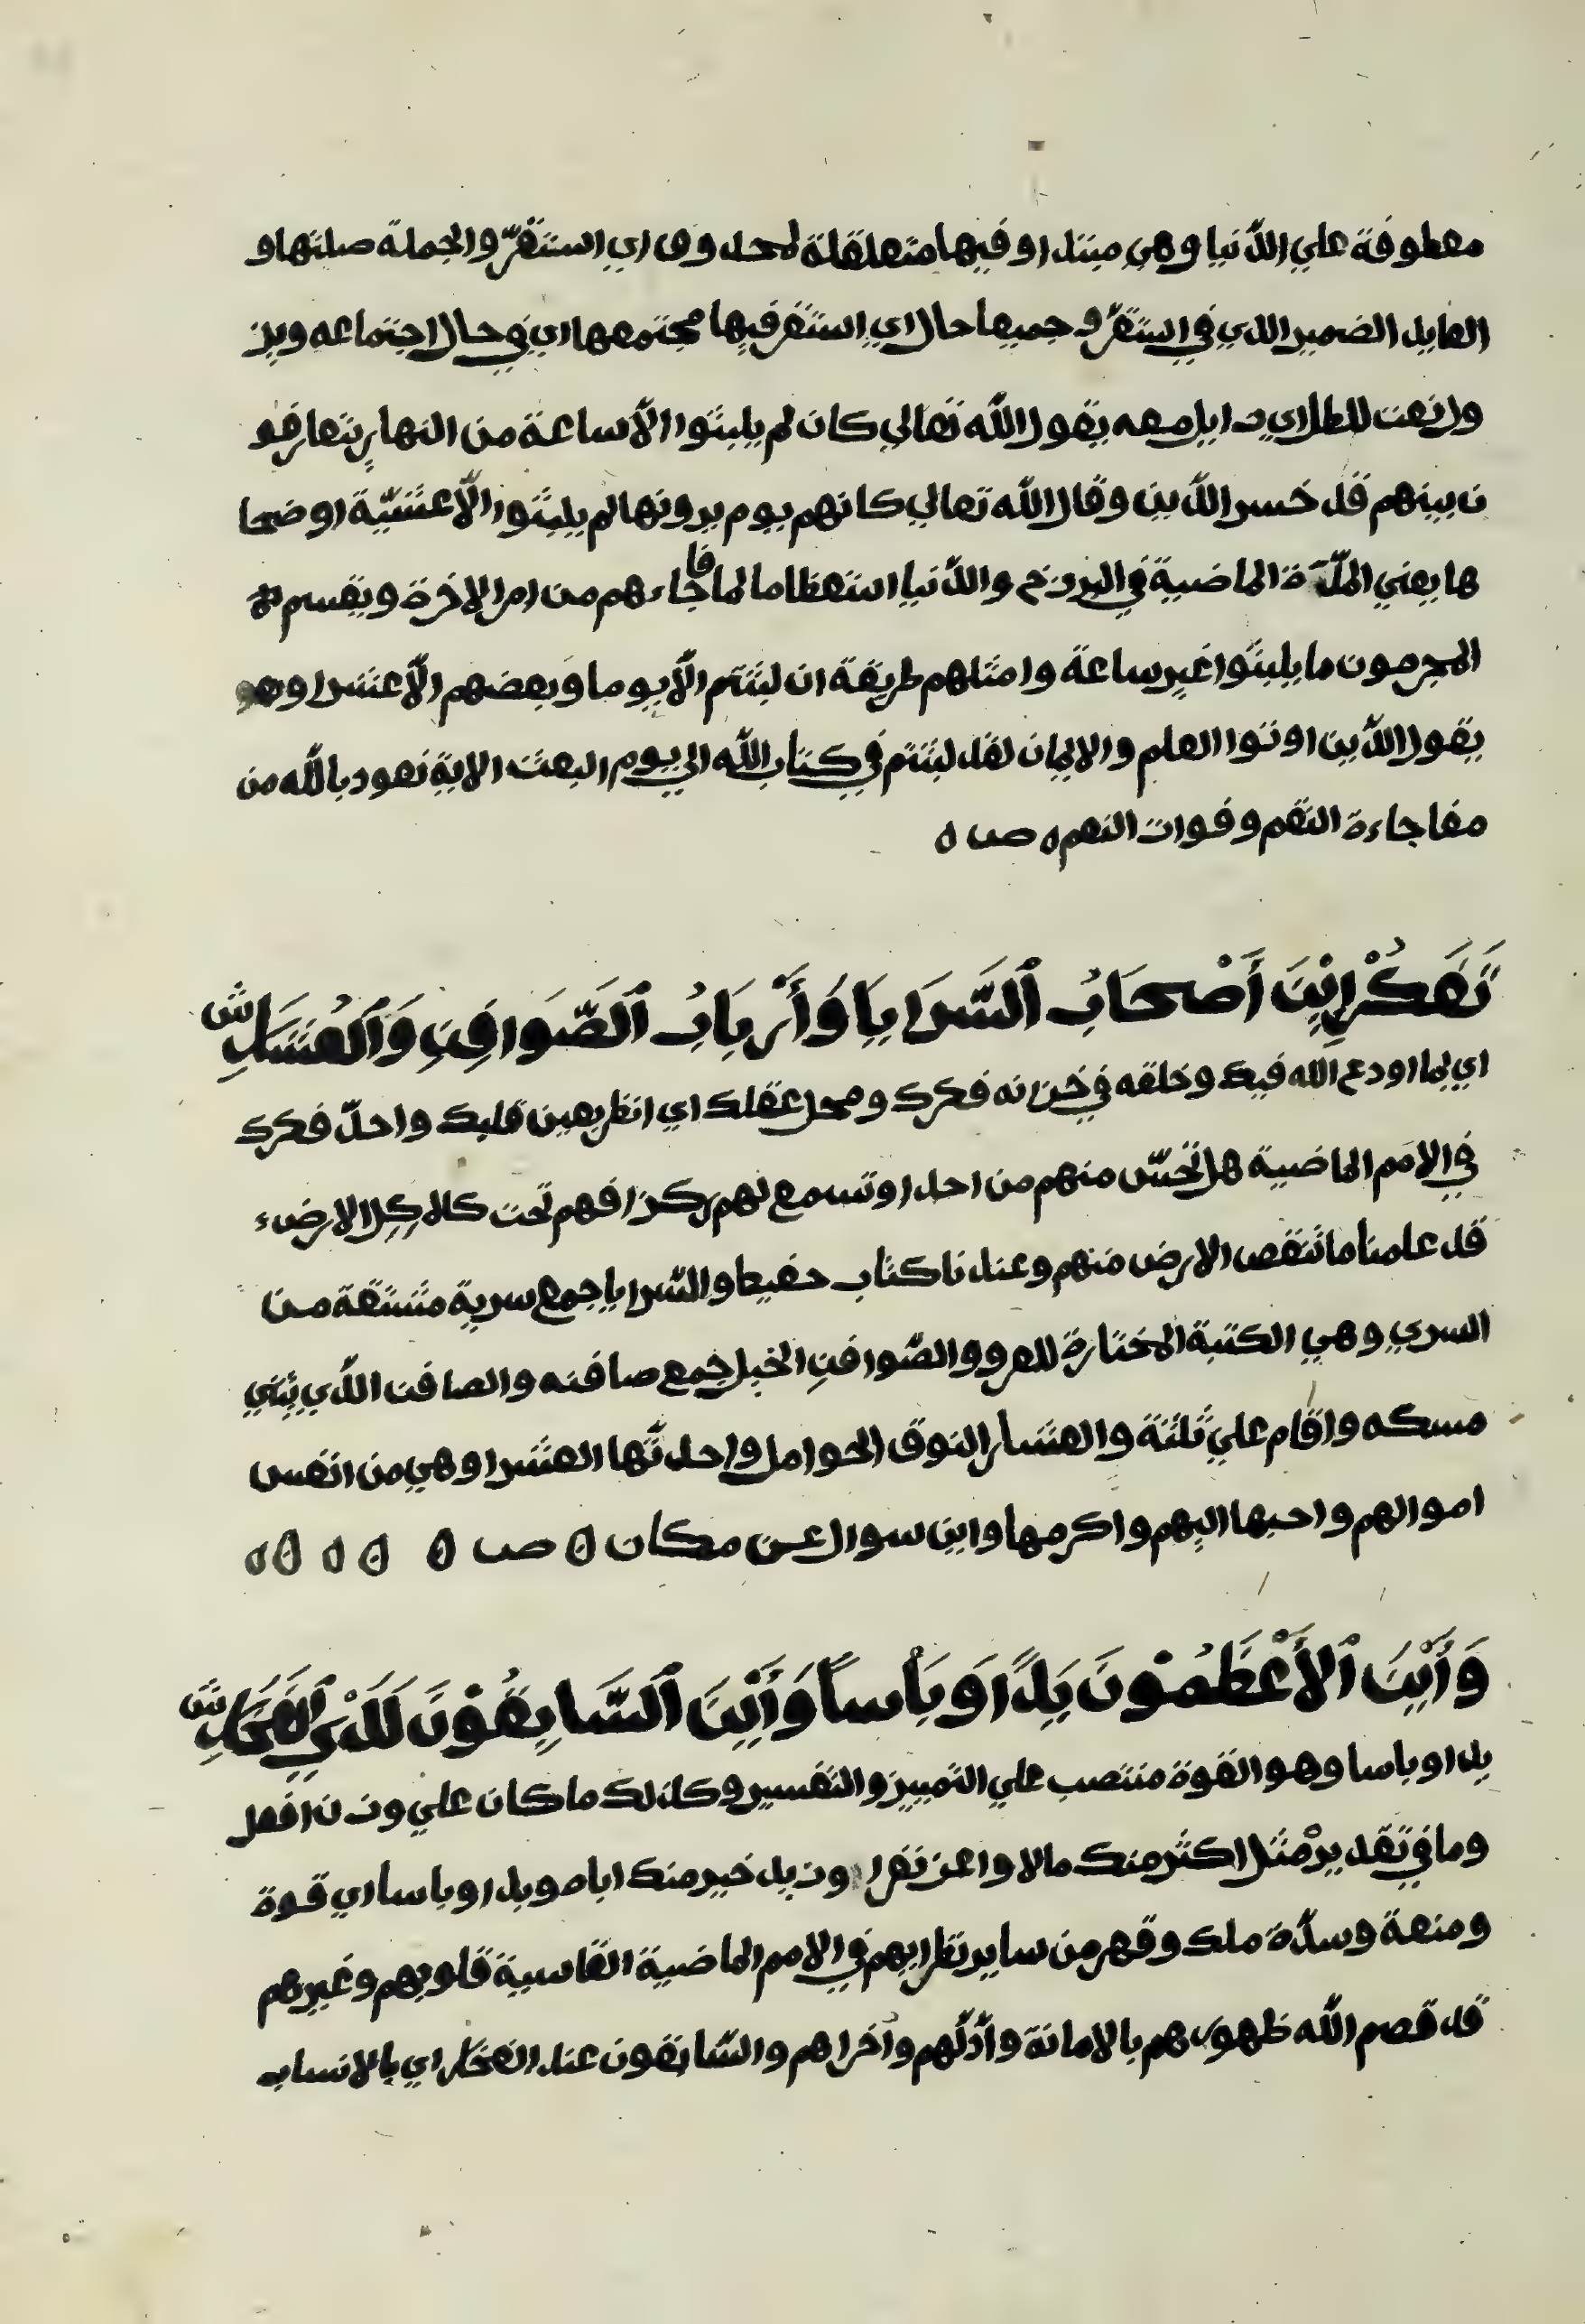 معطوفة علي الدّنيا وهي مبتدا وفيها متعلقلة لمحدوف اي استقرّ والجملة صلتها و
العايد الضمير الدي في استقرّ و جميعا حال اي استقر فيها مجتمعها اي في حال اجتماعه ويز
ول نعت للطل اي د ايل معه يقول الله تعالي كان لم يلبثوا الاّ ساعة من النهار يتعارفو
ن بينهم قد خسر الدّين وقال الله تعالي كانهم يوم يرونها لم يلبثوا الاّ عشيّة او ضحا
ها يعني المدّة الماضية في البرزخ والدّنيا استعظاما لما فاجاءهم من امر الاخرة ويقسم
المجرمون ما يلبثوا غير ساعة وامثلهم طريقة ان لبثتم الاّ يوما وبعضهم الاّ عشرا وهو
يقول الدّين اوتوا العلم والايمان لقد لبثتم في كتاب الله الي يوم البعث الاية نعود بالله من
مفاجاءة النقم وفوات النعم ه صب ه
تَفَكَّرْ اَيْنَ أَصْحَابُ ٱلسَّرَايَا وَأَرْبَابُ ٱلصَّوَافِنِ وَٱلْعِشَارِ ش
اي بما اودع الله فيك وخلقه في خزانه فكرك ومحل عقلك اي انظر بعين قلبك واحدّ فكرك
في الامم الماضية هل تحسّ منهم من احد او تسمع لهم ركزا فهم تحت كلاكل الارض
قد علمنا ما تنقص الارض منهم وعندنا كتاب حفيظ والسّرايا جمع سرية مشتقة من
السري وهي الكتبة المختارة للعرو والصّوافن الخيل جمع صافنه والصافن الدّي يثني
مسكه واقام علي ثلثة والعشار النوق الحوامل واحدتها العشرا وهي من انفس
اموالهم واحبها اليهم واكرمها واين سوال عن مكان ه صب ه ه ه ه ه
وَأَيْنَ ٱلأَعْظَمُوْنَ يَدًا وَبَأْساً وَأَيْنَ ٱلسَّابِقُوْنَ لَدَىْ ٱلفَخَارِ ش
يدا وباسا وهو القوة منتصب علي التمييز والتفسير وكذلك ما كان علي وزن افعل
وما في تقديره مثل اكثر منك مالا واعز نفرا وزيد خير منك ابا مو يدا وباسا اي قوة
ومنعة وسدّة ملك وقهر من ساير نظرايهم في الامم الماضية القاسية قلوبهم وغيرهم
قد قصم الله ظهورهم بالامانة وأدلّهم وأخزاهم والسّابقون عند الفخار اي بالانساب